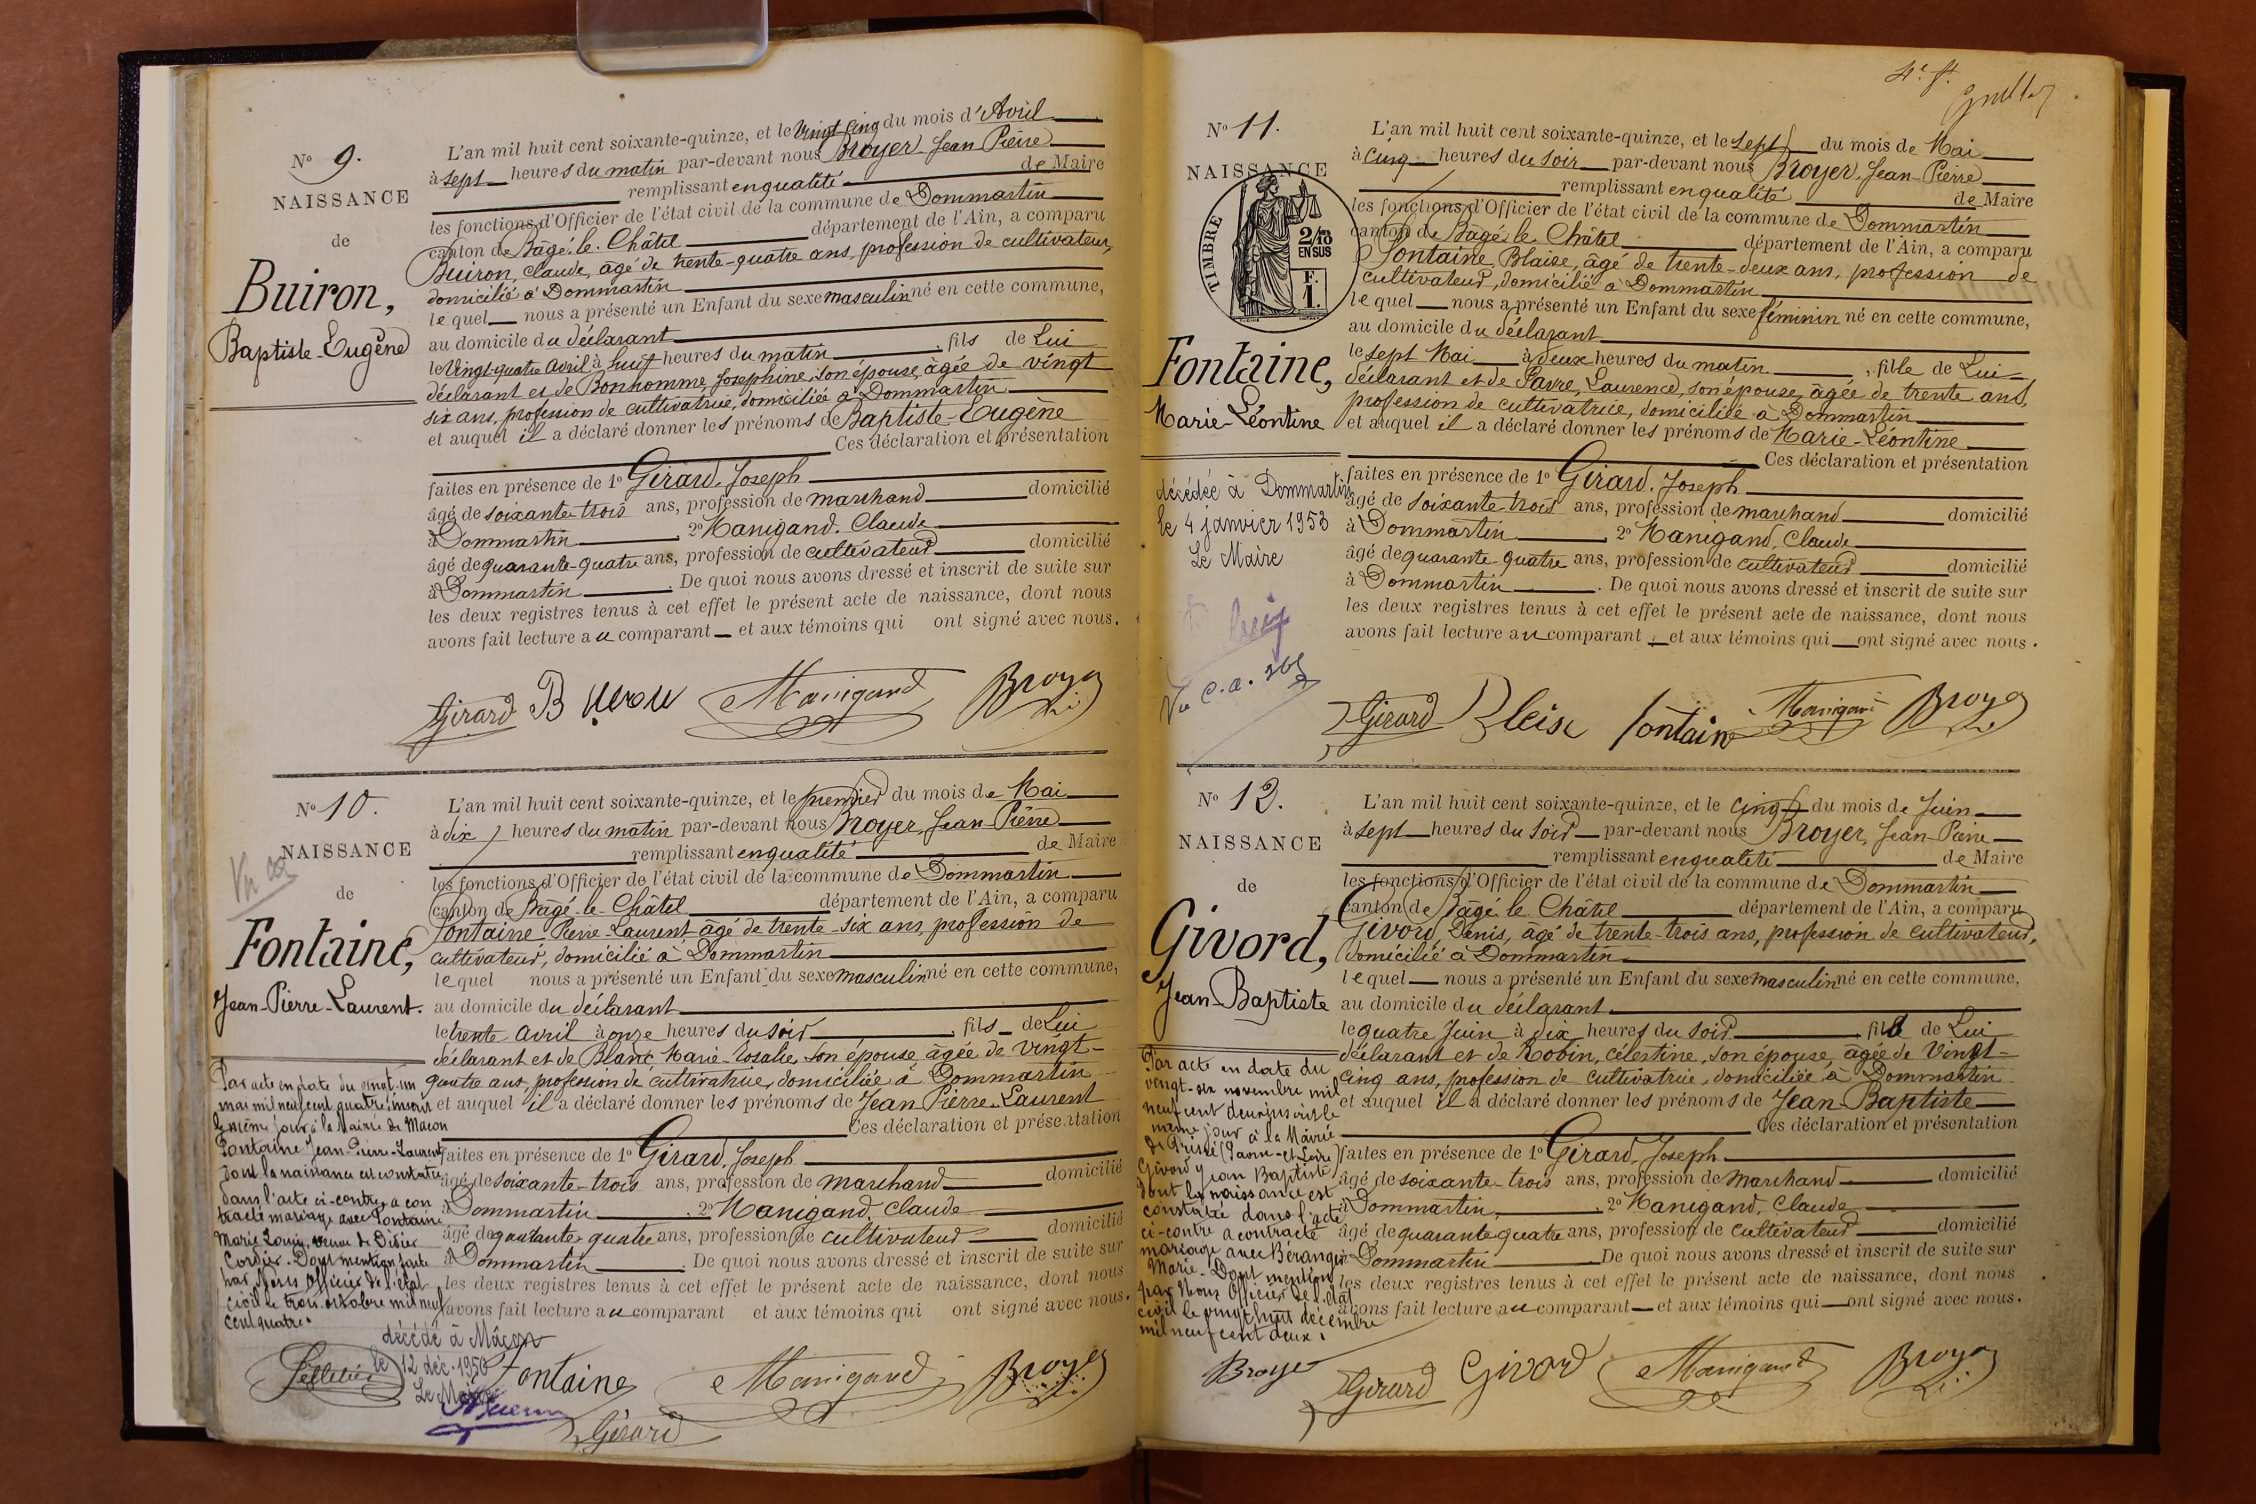 N° 9.
NAISSANCE
de
Buiron,
Baptiste-Eugène
L'an mil huit cent soixante-quinze, et le vingt cinq du mois d'Avril
à sept heures du matin par-devant nous Broyer Jean Pierre
remplissant en qualité de Maire
les fonctions d'Officier de l'état civil de la commune de Dommartin
canton de Bagé-le-Châtel département de l'Ain, a comparu
Buiron, Claude, âgé de trente-quatre ans, profession de cultivateur,
domicilié à Dommartin
lequel nous a présenté un Enfant du sexe masculin né en cette commune,
au domicile du déclarant
le vingt-quatre avril à huit heures du matin, fils de Lui
déclarant et de Bonhomme, Josephine, son épouse, âgée de vingt
six ans, profession de cultivatrice, domiciliée à Dommartin
et auquel il a déclaré donner les prénoms de Baptiste-Eugène
Ces déclaration et présentation
faites en présence de 1° Girard, Joseph
âgé de soixante-trois ans, profession de marchand domicilié
à Dommartin 2° Manigand, Claude
âgé de quarante-quatre ans, profession de cultivateur domicilié
à Dommartin. De quoi nous avons dressé et inscrit de suite sur
les deux registres tenus à cet effet le présent acte de naissance, dont nous
avons fait lecture au comparant et aux témoins qui ont signé avec nous.
Girard Buiron Manigand Broyer
N° 10.
NAISSANCE
de
Fontaine,
Jean-Pierre-Laurent.
L'an mil huit cent soixante-quinze, et le premier du mois de Mai
à dix heures du matin par-devant nous Broyer, Jean-Pierre
remplissant en qualité de Maire
les fonctions d'Officier de l'état civil de la commune de Dommartin
canton de Bagé-le-Châtel département de l'Ain, a comparu
Fontaine Pierre-Laurent âgé de trente-six ans, profession de
cultivateur, domicilié à Dommartin
lequel nous a présenté un Enfant du sexe masculin né en cette commune,
au domicile du déclarant
le trente avril à onze heures du soir, fils de Lui
déclarant et de Blanc, Marie-Rosalie, son épouse, âgée de vingt-
quatre ans, profession de cultivatrice, domiciliée à Dommartin
et auquel il a déclaré donner les prénoms de Jean Pierre-Laurent
Ces déclaration et présentation
faites en présence de 1° Girard, Joseph
âgé de soixante-trois ans, profession de marchand domicilié
à Dommartin. 2° Manigand, Claude
âgé de quarante-quatre ans, profession de cultivateur domicilié
à Dommartin. De quoi nous avons dressé et inscrit de suite sur
les deux registres tenus à cet effet le présent acte de naissance, dont nous
avons fait lecture au comparant et aux témoins qui ont signé avec nous.
Par acte en date du vingt-un
mai mil neuf cent quatre, inscrit
le même jour à la Mairie de Macon
Fontaine Jean-Pierre-Laurent
dont la naissance est constatée
dans l'acte ci-contre, a con
tracté mariage avec Fontaine
Marie Louise, veuve de Didier
Cordier. Dont mention faite
par Nous Officier de l'état
civil le trois octobre mil neuf
cent quatre.
décédé à Mâcon
le 12 déc. 1950
Le Maire
Fontaine Manigand Broyer
Girard
N° 11.
NAISSANCE
TIMBRE
2/10
EN SUS
F.
1.
Fontaine,
Marie-Léontine
L'an mil huit cent soixante-quinze, et le sept du mois de Mai
à cinq heures du soir par-devant nous Broyer, Jean-Pierre
remplissant en qualité de Maire
les fonctions d'Officier de l'état civil de la commune de Dommartin
canton de Bagé-le-Châtel département de l'Ain, a comparu
Fontaine, Blaise, âgé de trente-deux ans, profession de
cultivateur, domicilié à Dommartin
lequel nous a présenté un Enfant du sexe féminin né en cette commune,
au domicile du déclarant
le sept Mai à deux heures du matin, fille de Lui
déclarant et de Favre, Laurence, son épouse, âgée de trente ans,
profession de cultivatrice, domiciliée à Dommartin
et auquel il a déclaré donner les prénoms de Marie-Léontine
Ces déclaration et présentation
faites en présence de 1° Girard, Joseph
âgé de soixante-trois ans, profession de marchand domicilié
à Dommartin, 2° Manigand, Claude
âgé de quarante-quatre ans, profession de cultivateur domicilié
à Dommartin. De quoi nous avons dressé et inscrit de suite sur
les deux registres tenus à cet effet le présent acte de naissance, dont nous
avons fait lecture au comparant, et aux témoins qui ont signé avec nous.
décédée à Dommartin
le 4 janvier 1953
Le Maire
Girard Bleise fontaine Manigand Broyer
N° 12.
NAISSANCE
de
Givord,
Jean-Baptiste
L'an mil huit cent soixante-quinze, et le cinq du mois de Juin
à sept heures du soir par-devant nous Broyer, Jean-Pierre
remplissant en qualité de Maire
les fonctions d'Officier de l'état civil de la commune de Dommartin
canton de Bagé-le-Châtel département de l'Ain, a comparu
Givord, Denis, âgé de trente-trois ans, profession de cultivateur,
domicilié à Dommartin
lequel nous a présenté un Enfant du sexe masculin né en cette commune,
au domicile du déclarant
le quatre Juin à dix heures du soir fils de Lui
déclarant et de Robin, célestine, son épouse, âgée de vingt-
cinq ans, profession de cultivatrice, domiciliée à Dommartin
et auquel il a déclaré donner les prénoms de Jean-Baptiste
Ces déclaration et présentation
faites en présence de 1° Girard, Joseph
âgé de soixante-trois ans, profession de marchand domicilié
à Dommartin, 2° Manigand, Claude
âgé de quarante-quatre ans, profession de cultivateur domicilié
à Dommartin De quoi nous avons dressé et inscrit de suite sur
les deux registres tenus à cet effet le présent acte de naissance, dont nous
avons fait lecture au comparant et aux témoins qui ont signé avec nous.
Par acte en date du
vingt-six novembre mil
neuf cent deux, inscrit le
même jour à la Mairie
de Prissé (Saône-et-Loire)
Givord Jean Baptiste
dont la naissance est
constatée dans l'acte
ci-contre a contracté
mariage avec Béranger
Marie. Dont mention
par Nous Officier de l'état
civil le vingt huit décembre
mil neuf cent deux.
Broyer
Girard Givord Manigand Broyer